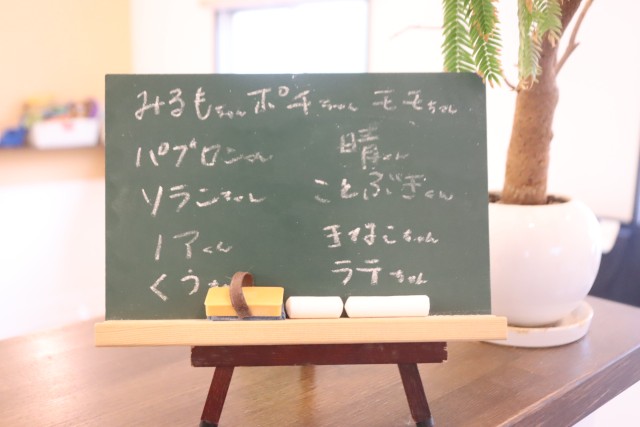 みるもちゃん ポチちゃん モモちゃん
パブロンくん 晴くん
ソランちゃん ことぶきくん
ノアくん きなこちゃん
くう ラテちゃん